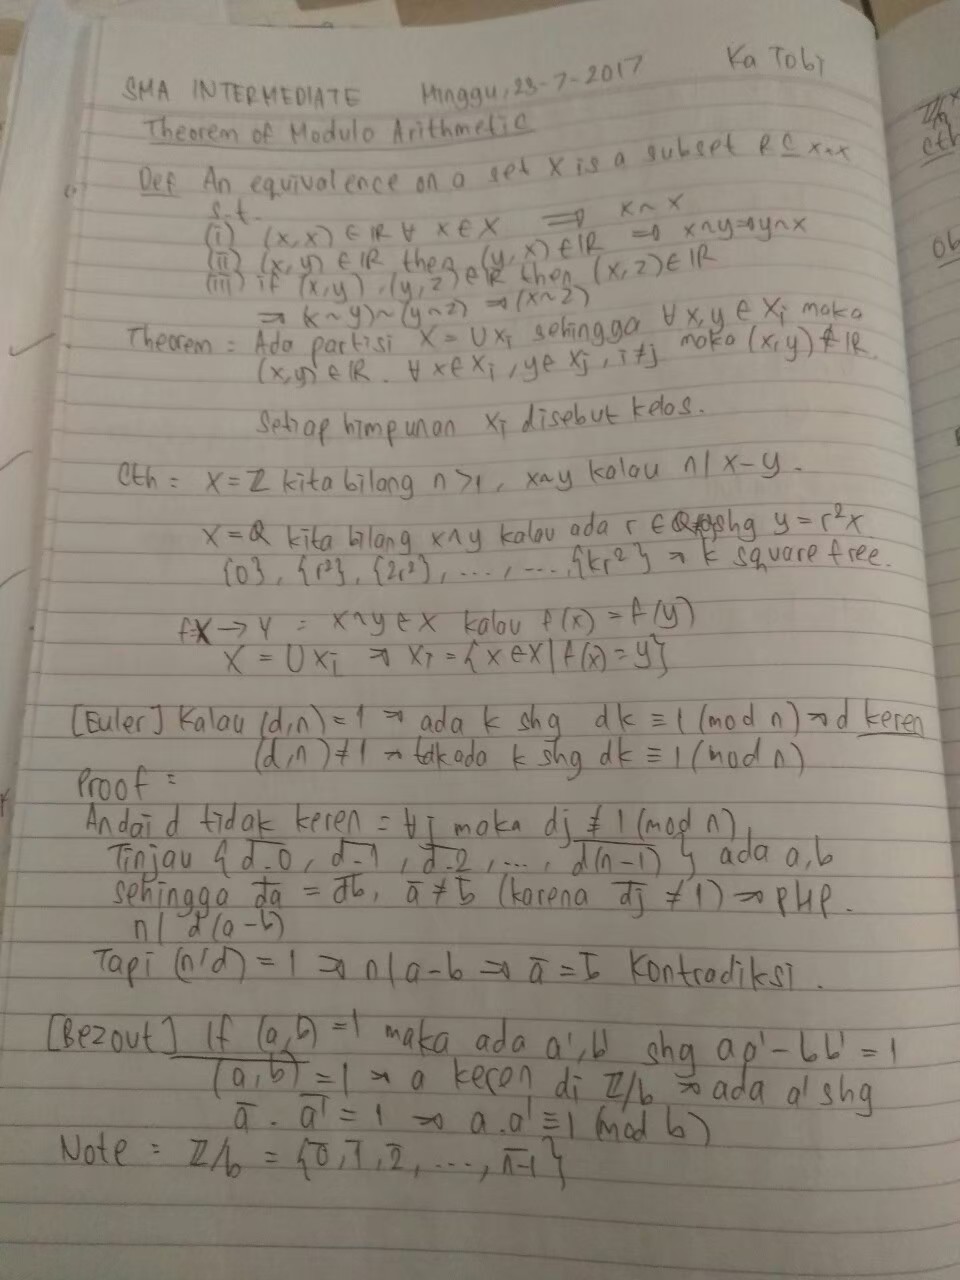 Ka Tobi
SMA INTERMEDIATE Minggu, 23-7-2017
Theorem of Modulo Arithmetic
Def An equivalence on a set X is a subset R ⊆ X×X
s.t.
(i) (x,x) ∈ R ∀ x ∈ X ⇒ x~x
(ii) (x,y) ∈ R then (y,x) ∈ R ⇒ x~y ⇒ y~x
(iii) if (x,y), (y,z) ∈ R then (x,z) ∈ R
⇒ x~y) ~ (y~z) ⇒ (x~z)
Theorem = Ada partisi X = ∪Xi sehingga ∀ x,y ∈ Xi maka
(x,y) ∈ R. ∀ x ∈ Xi, y ∈ Xj, i≠j maka (x,y) ∉ R.
Setiap himpunan Xi disebut kelas.
Cth = X = Z kita bilang n>1, x~y kalau n | x-y.
X = Q kita bilang x~y kalau ada r ∈ Q shg y = r²x
{0}, {r²}, {2r²}, ..., ..., {kr²} → k square free.
f=X → Y = x~y ∈ X kalau f(x) = f(y)
X = ∪Xi → Xi = {x ∈ X | f(x) = y}
[Euler] Kalau (d,n) = 1 → ada k shg dk ≡ 1 (mod n) → d keren
(d,n) ≠ 1 → tak ada k shg dk ≡ 1 (mod n)
Proof =
Andai d tidak keren = ∀j maka dj ≢ 1 (mod n),
Tinjau { d̅.̅0̅, d̅.̅1̅, d̅.̅2̅, ..., d̅(̅n̅-̅1̅)̅ } ada a,b
sehingga d̅a̅ = d̅b̅, a̅ ≠ b̅ (karena d̅j̅ ≠ 1) → PHP.
n | d(a-b)
Tapi (n,d) = 1 ⇒ n | a-b ⇒ a̅ = b̅ Kontradiksi.
[Bezout] If (a,b) = 1 maka ada a', b' shg aa' - bb' = 1
(a,b) = 1 → a keren di Z/b → ada a' shg
a̅ . a̅'̅ = 1 → a.a' ≡ 1 (mod b)
Note = Z/b = {0̅, 1̅, 2̅, ..., n̅-̅1̅}